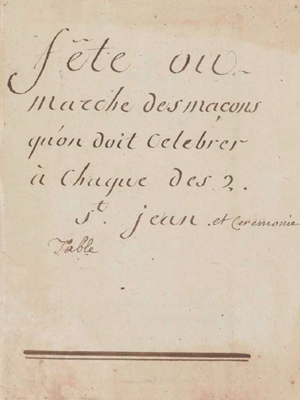 fête ou
marche des maçons
qu'on doit Celebrer
à Chaque des 2.
st. jean. et Ceremonie
Table